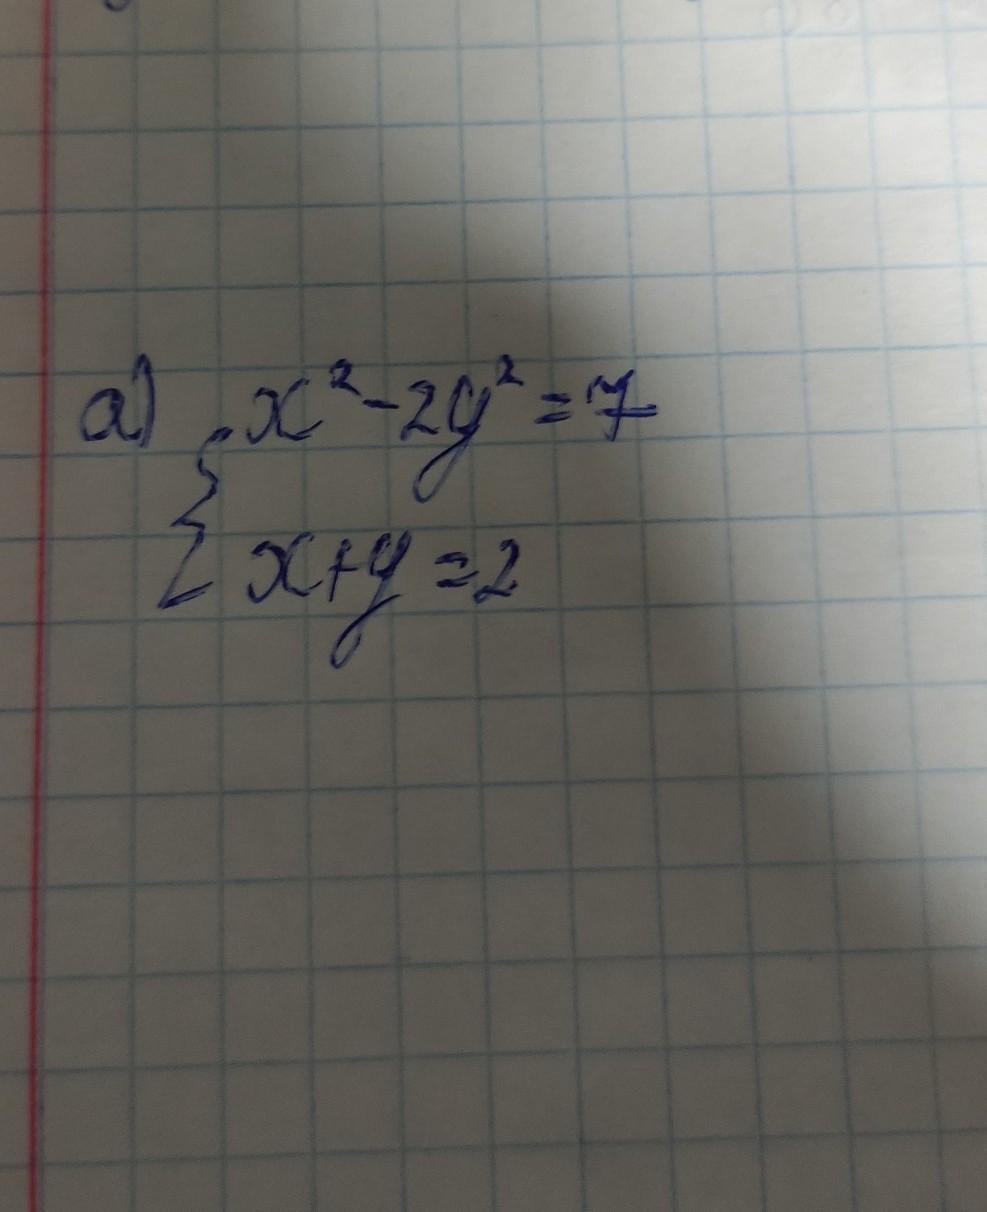 а) x² - 2y² = 7
x + y = 2